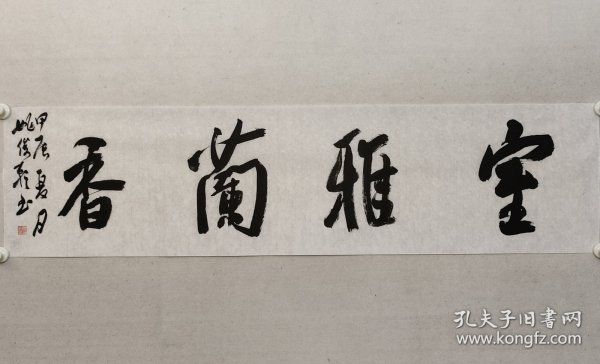 室雅蘭香
甲辰夏月
姚俊卿书
孔夫子旧書网
www.kongfz.com